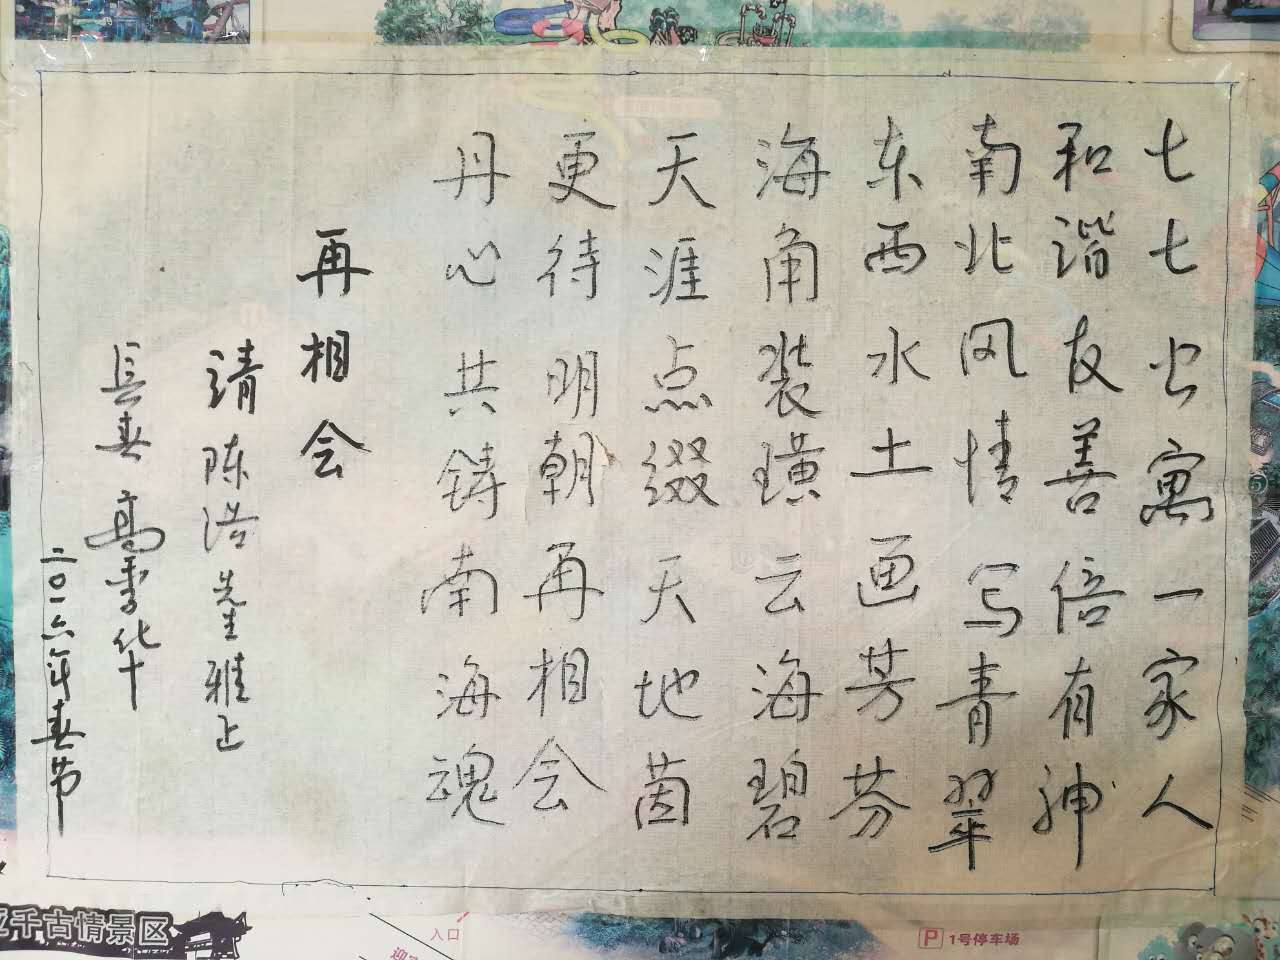 七七公寓一家人
和谐友善倍有神
南北风情写青翠
东西水土画芳芬
海角装璜云海碧
天涯点缀天地茵
更待明朝再相会
丹心共铸南海魂
再相会
请陈浩先生雅正
长春 高秀华
二〇一六年春节
千古情景区
入口
P 1号停车场